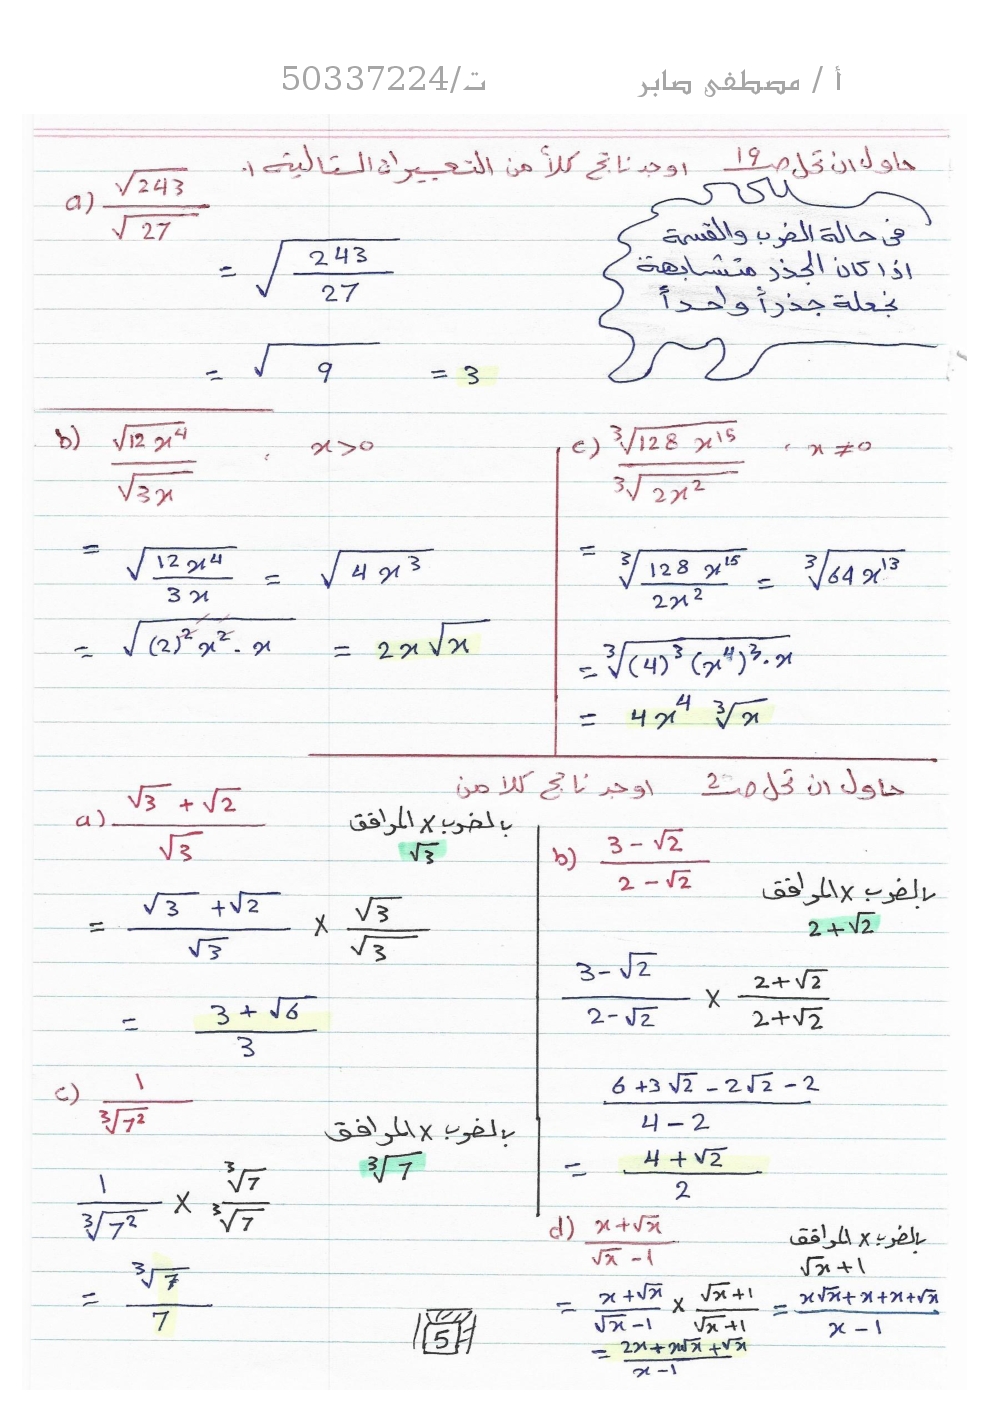 أ / مصطفى صابر ت/50337224
حاول ان تحل صـ 19 اوجد ناتج كلاً من التعبيرات التالية :
a) √243 / √27
فى حالة الضرب والقسمة
اذا كان الجذر متشابهة
نجعلة جذراً واحداً
= √(243 / 27)
= √9 = 3
b) √(12x⁴) / √(3x) , x>0
= √(12x⁴ / 3x) = √(4x³)
= √((2)² x² · x) = 2x√x
c) ∛(128 x¹⁵) / ∛(2x²) , x ≠ 0
= ∛(128 x¹⁵ / 2x²) = ∛(64 x¹³)
= ∛((4)³ (x⁴)³ · x)
= 4x⁴ ∛x
حاول ان تحل صـ 2 اوجد ناتج كلاً من
a) (√3 + √2) / √3
بالضرب x المرافق
√3
= (√3 + √2) / √3 X √3 / √3
= (3 + √6) / 3
b) (3 - √2) / (2 - √2)
بالضرب x المرافق
2+√2
(3-√2) / (2-√2) X (2+√2) / (2+√2)
(6 + 3√2 - 2√2 - 2) / (4 - 2)
= (4 + √2) / 2
c) 1 / ∛(7²)
بالضرب x المرافق
∛7
1 / ∛(7²) X ∛7 / ∛7
= ∛7 / 7
d) (x+√x) / (√x - 1)
بالضرب x المرافق
√x + 1
= (x+√x) / (√x - 1) X (√x+1) / (√x+1) = (x√x + x + x + √x) / (x - 1)
= (2x + x√x + √x) / (x - 1)
5